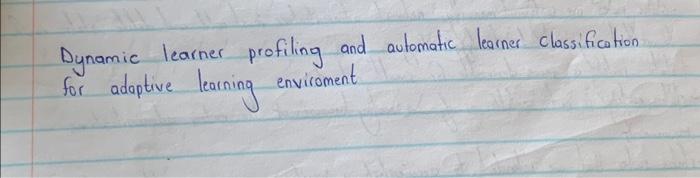 Dynamic learner profiling and automatic learner classification
for adaptive learning enviroment